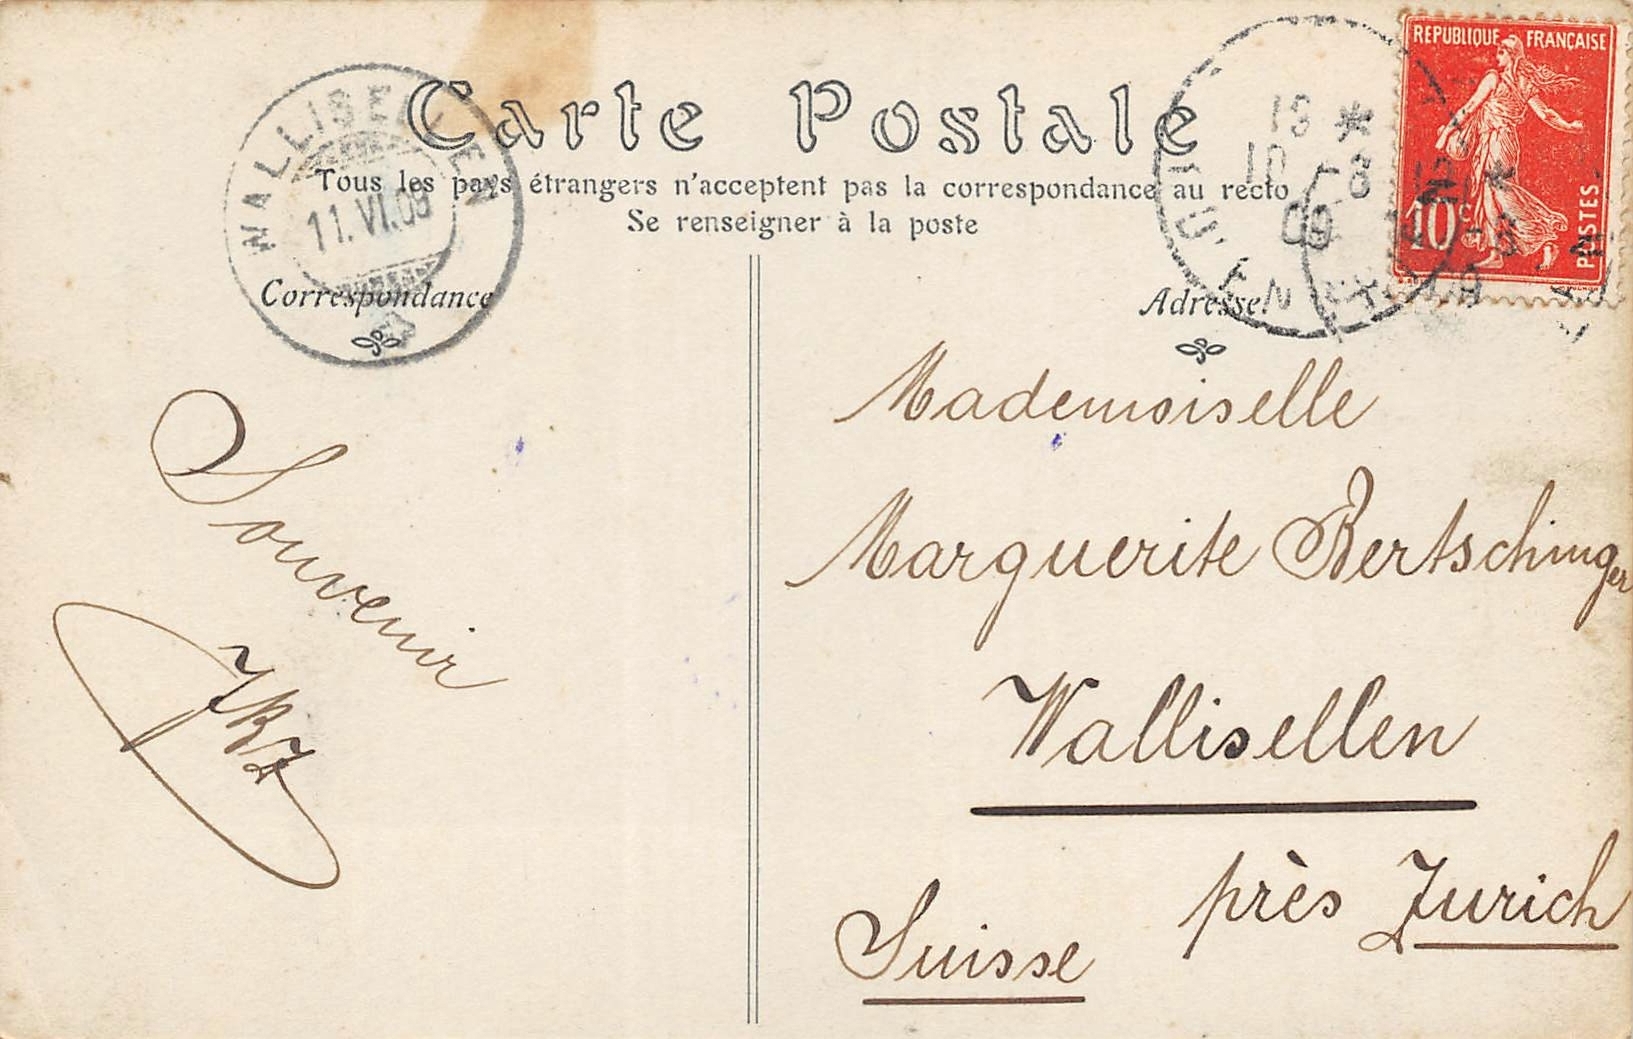 Carte Postale
Tous les pays étrangers n'acceptent pas la correspondance au recto
Se renseigner à la poste
Correspondance
Adresse
WALLISELLEN
11.VI.09
REPUBLIQUE FRANÇAISE
10c
POSTES
Souvenir
Mademoiselle
Marguerite Bertschinger
Wallisellen
près Zurich
Suisse